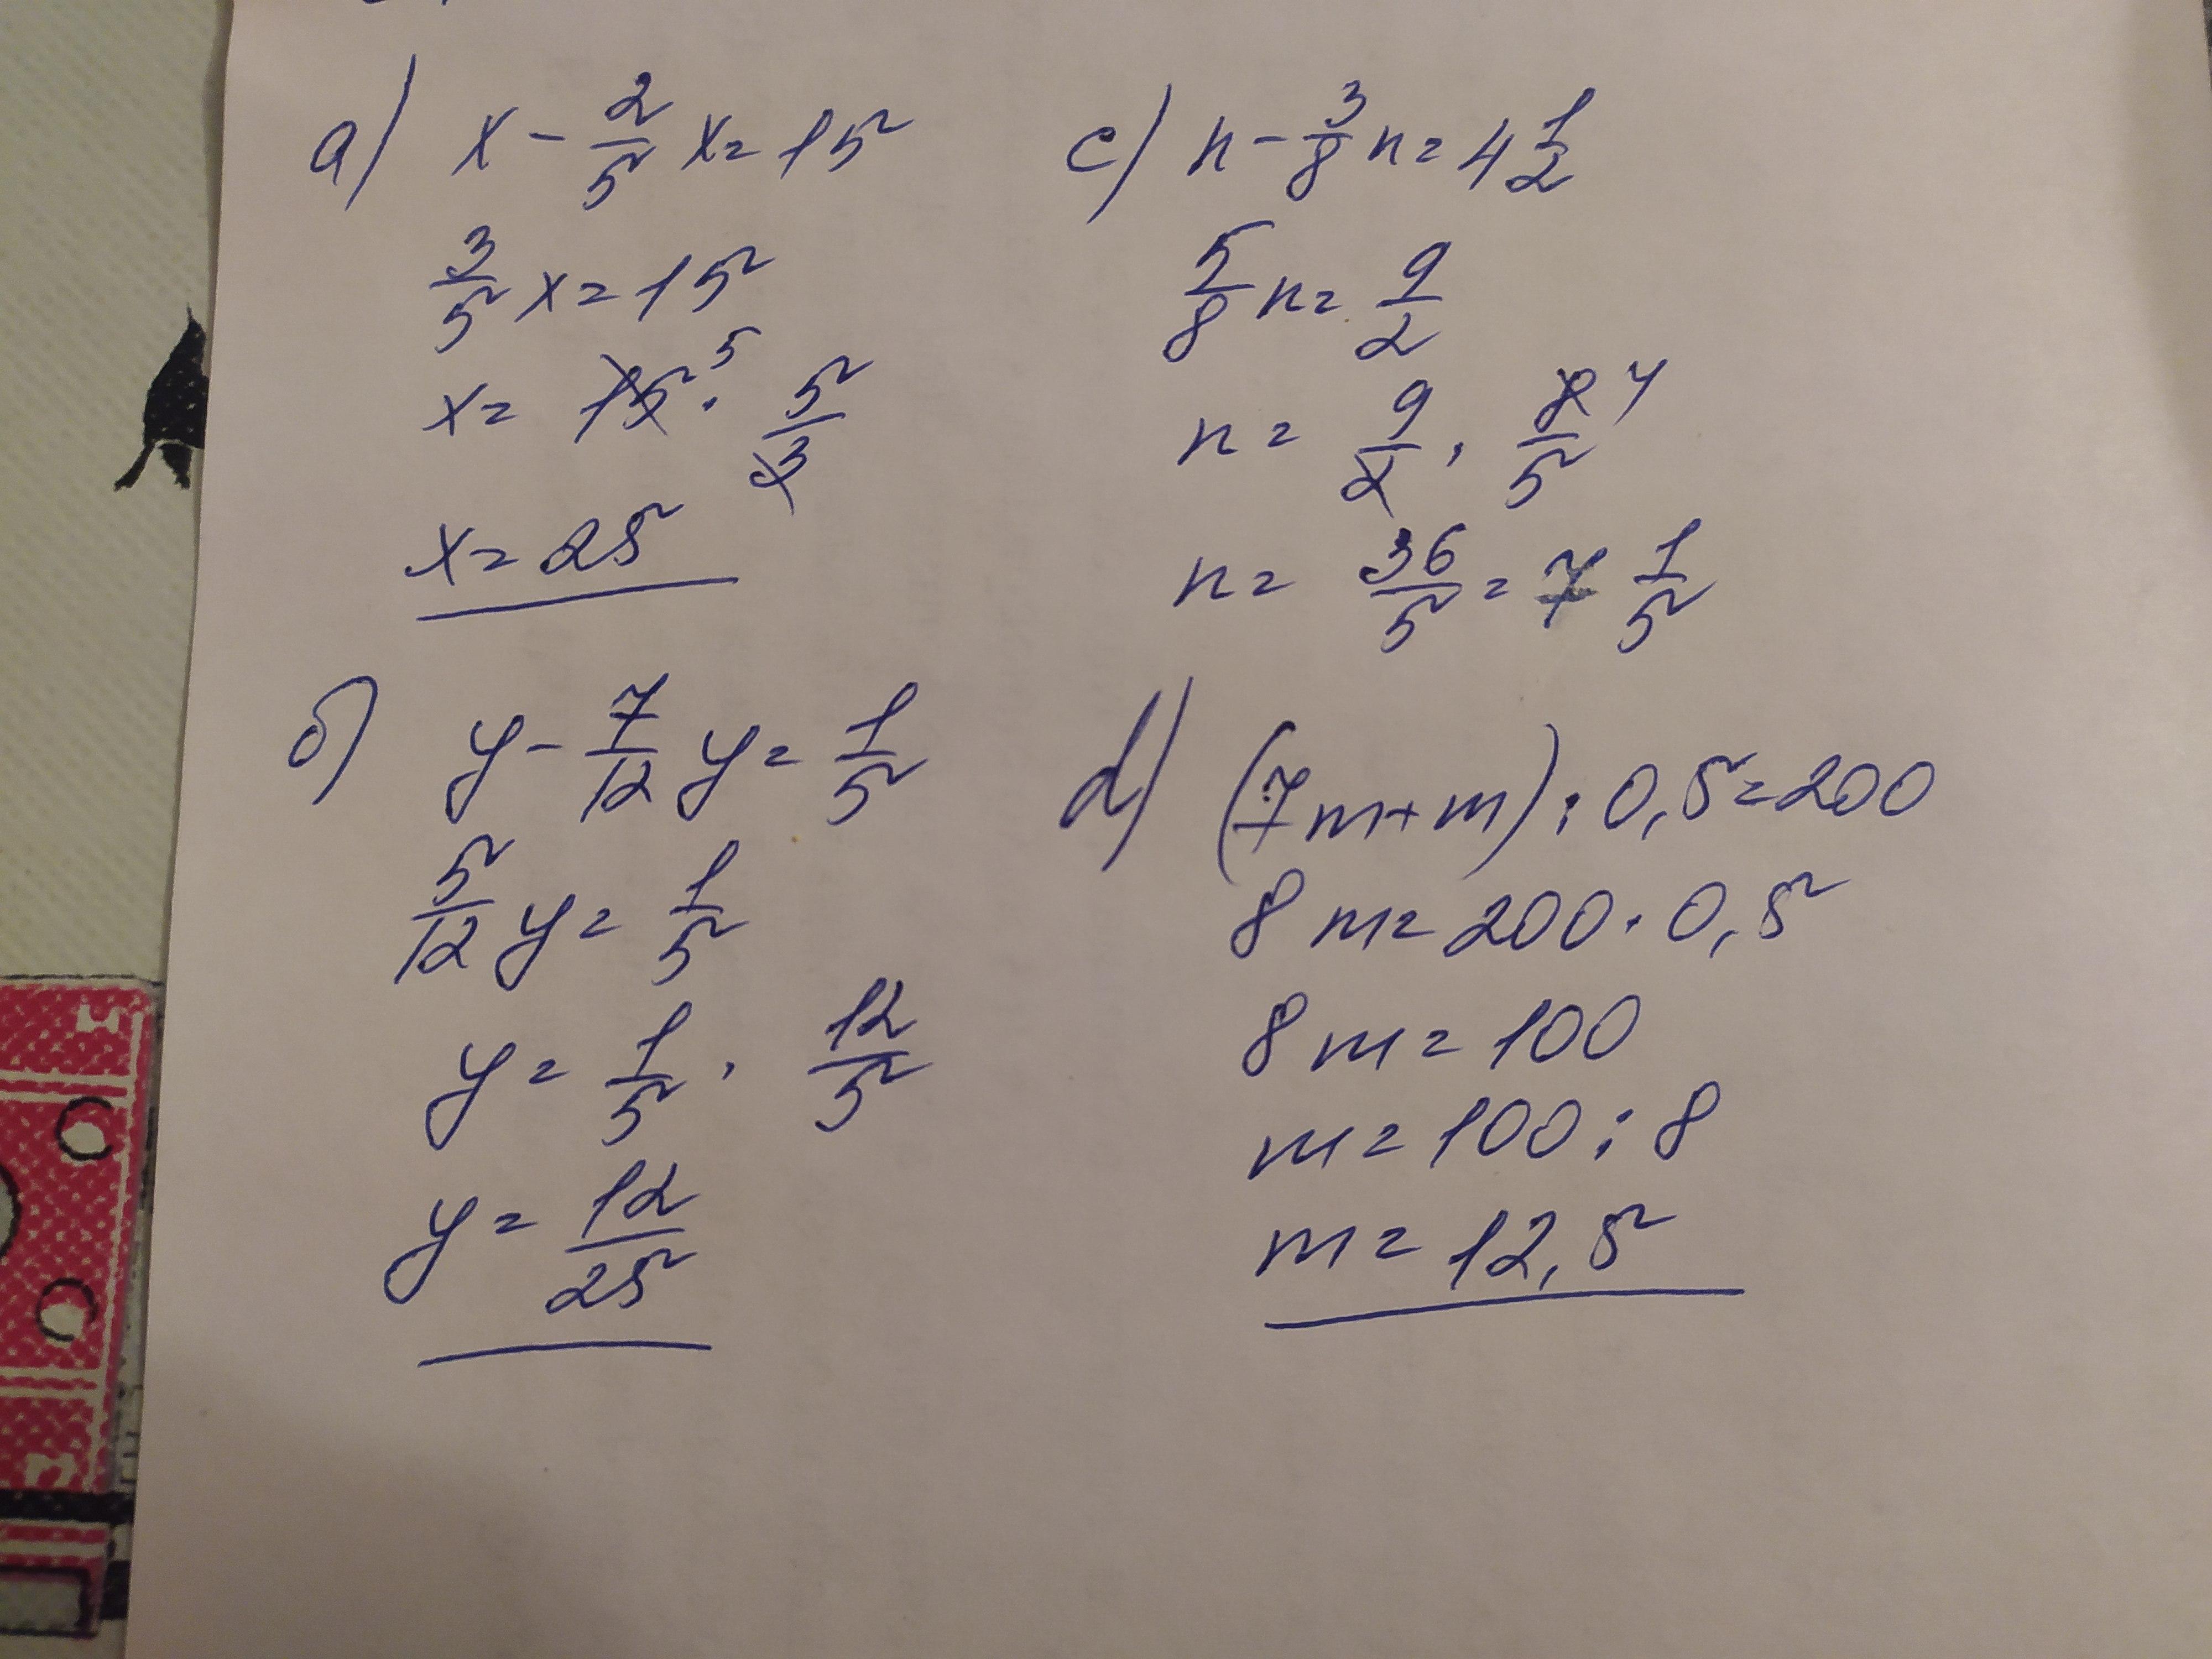 a) x - 2/5 x = 15
3/5 x = 15
x = 15 5 · 5/3
x = 25
б) y - 7/12 y = 1/5
5/12 y = 1/5
y = 1/5 · 12/5
y = 12/25
c) n - 3/8 n = 4 1/2
5/8 n = 9/2
n = 9/2 · 8/5 4
n = 36/5 = 7 1/5
d) (7m+m) : 0,5 = 200
8m = 200 · 0,5
8m = 100
m = 100 : 8
m = 12,5